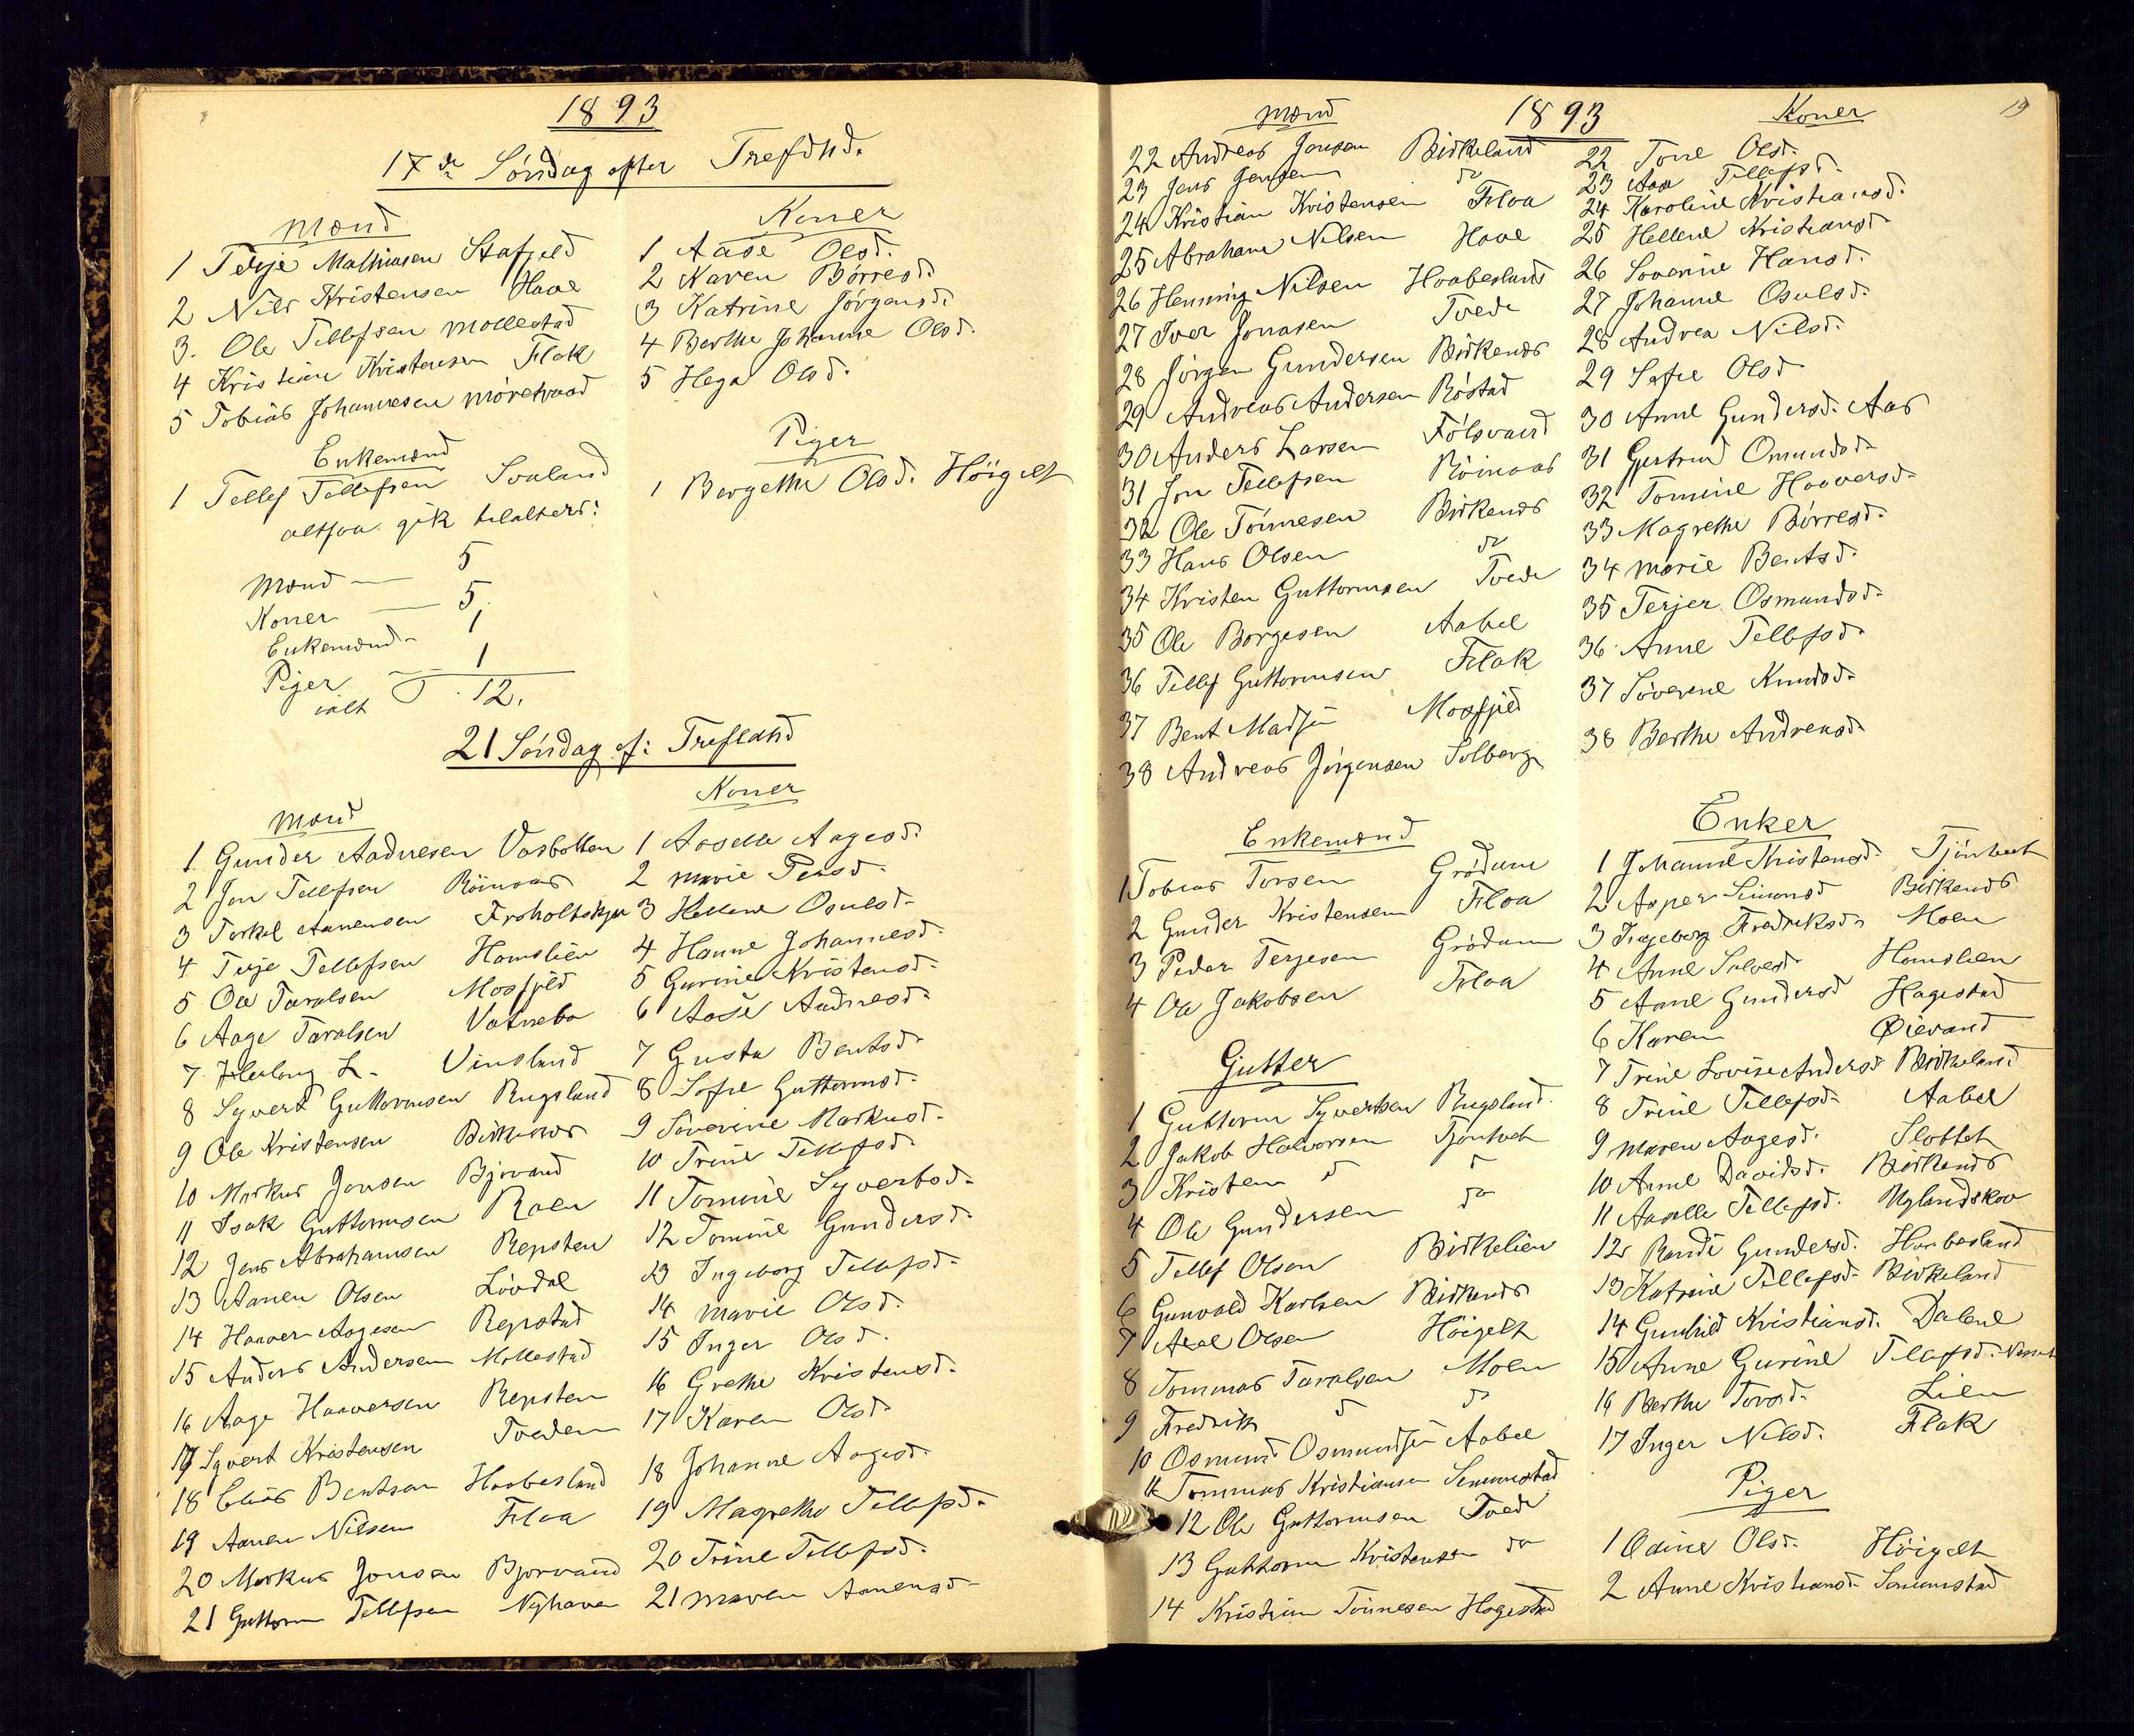 1893
17de Søndag efter Trefdhd.
Mænd
1 Terje Mathiasen Stafjeld
2 Nils Kristensen Haae
3. Ole Tellefsen Mollestad
4 Kristian Kristensen Flak
5 Tobias Johannesen Möretvaad
Koner
1 Aase Olsd.
2 Karen Börresd.
3 Katrine Jörgensd.
4 Berthe Johanne Olsd.
5 Hega Olsd.
Enkemænd
1 Tellef Tellefsen Svaland
Piger
1 Bergethe Olsd. Höigelt
altsaa gik tilalters:
Mænd — 5
Koner — 5.
Enkemænd - 1
Piger — 1
ialt 12.
21 Söndag ef: Trefland
Mænd
1. Gunder Aadnesen Vasbotten
2 Jon Tellefsen Röinaas
3 Terkel Aanensen Froholtskjer
4 Terje Tellefsen Hamslien
5 Ole Taralsen Mosfjeld
6 Aage Taralsen Vatnebo
7. Herlong L. Vinsland
8 Syvert Guttormsen Rugsland
9 Ole Kristensen Birkenes
10 Markus Jensen Bjorvand
11 Isak Guttormsen Raen
12 Jens Abrahamsen Repsten
13 Aanen Olsen Lövdal
14 Haaver Aagesen Repstad
15 Anders Andersen Mollestad
16 Aage Haaversen Repsten
17 Syvert Kristensen Tveden
18 Elias Bentsen Haabesland
19 Aanen Nilsen Floa
20 Markus Jensen Bjorvand
21 Guttorm Tellefsen Nyhaven
Koner
1 Aaselle Aagesd.
2 Marie Persd.
3 Hellene Osulsd.
4 Hanne Johannesd.
5 Gurine Kristensd.
6 Aase Aadnesd.
7 Gusta Bentsd.
8 Sofie Guttormsd.
9 Severine Markusd.
10 Trine Tellefsd.
11 Tomine Syvertsd.
12 Tomine Gundersd.
13 Ingeborg Tellefsd.
14 Marie Olsd.
15 Inger Olsd.
16 Grethe Kristensd.
17 Karen Olsd.
18 Johanne Aagesd.
19 Magrethe Tellefsd.
20 Trine Tellefsd.
21 Maren Aanensd.
Mænd 1893 Koner 19
22 Andreas Jensen Birkeland
23 Jens Jensen do
24 Kristian Kristensen Floa
25 Abraham Nilsen Haae
26 Henning Nilsen Haabesland
27 Iver Jonasen Tvede
28 Jörgen Gundersen Birkenes
29 Andreas Andersen Röstad
30 Anders Larsen Fölsvand
31 Jon Tellefsen Röinaas
32 Ole Tönnesen Birkenes
33 Hans Olsen do
34 Kristen Guttormsen Tvede
35 Ole Borgesen Aabel
36 Tellef Guttormsen Flak
37 Bent Madsen Mosfjeld
38 Andreas Jörgensen Solberg
22 Tone Olsd.
23 Aase Tellefsd.
24 Karoline Kristiansd.
25 Hellene Kristiansd.
26 Soverine Hansd.
27 Johanne Osulsd.
28 Andrea Nilsd.
29 Sofie Olsd
30 Anne Gundersd. Aas
31 Gertrud Omundsd.
32 Tomine Haaversd.
33 Magrethe Börresd.
34 Marie Bentsd.
35 Terjer Osmundsd.
36 Anne Tellefsd.
37 Söverene Knudsd.
38 Berthe Andreasd.
Enkemænd
1 Tobias Torsen Grödum
2 Gunder Kristensen Floa
3 Peder Terjesen Grödum
4 Ole Jakobsen Floa
Gutter
1 Guttorm Syvertsen Rugsland.
2 Jakob Halvorsen Tjontveit
3 Kristen do do
4 Ole Gundersen do
5 Tellef Olsen Birkelien
6 Gunvald Karlsen Birkenes
7 Axel Olsen Höigelt
8 Tommas Taralsen Moen
9 Fredrik do do
10 Osmund Osmundsen Aabel
11 Tommas Kristiansen Senumstad
12 Ole Guttormsen Tvede
13 Guttorm Kristensen do
14 Kristian Tönnesen Hagestad
Enker
1 Johanne Kristensd. Tjöntveit
2 Asper Simonsd Birkenes
3 Ingeborg Fredriksd. Moen
4 Anne Salvesd. Hamslien
5 Anne Gundersd Hagestad
6 Karen Øievand
7 Trine Lovise Andersd. Birkeland
8 Trine Tellefsd. Aabel
9 Maren Aagesd. Slottet
10 Anne Davidsd. Birkenes
11 Aaselle Tellefsd. Uglandskov
12 Randi Gundersd. Haabesland
13 Katrine Tellefsd. Birkeland
14 Gunhild Kristiansd. Dalene
15 Anne Gurine Tellefsd.
16 Berthe Torsd. Lien
17 Inger Nilsd. Flak
Piger
1 Odine Olsd. Höigelt
2 Anne Kristiansd. Senumstad